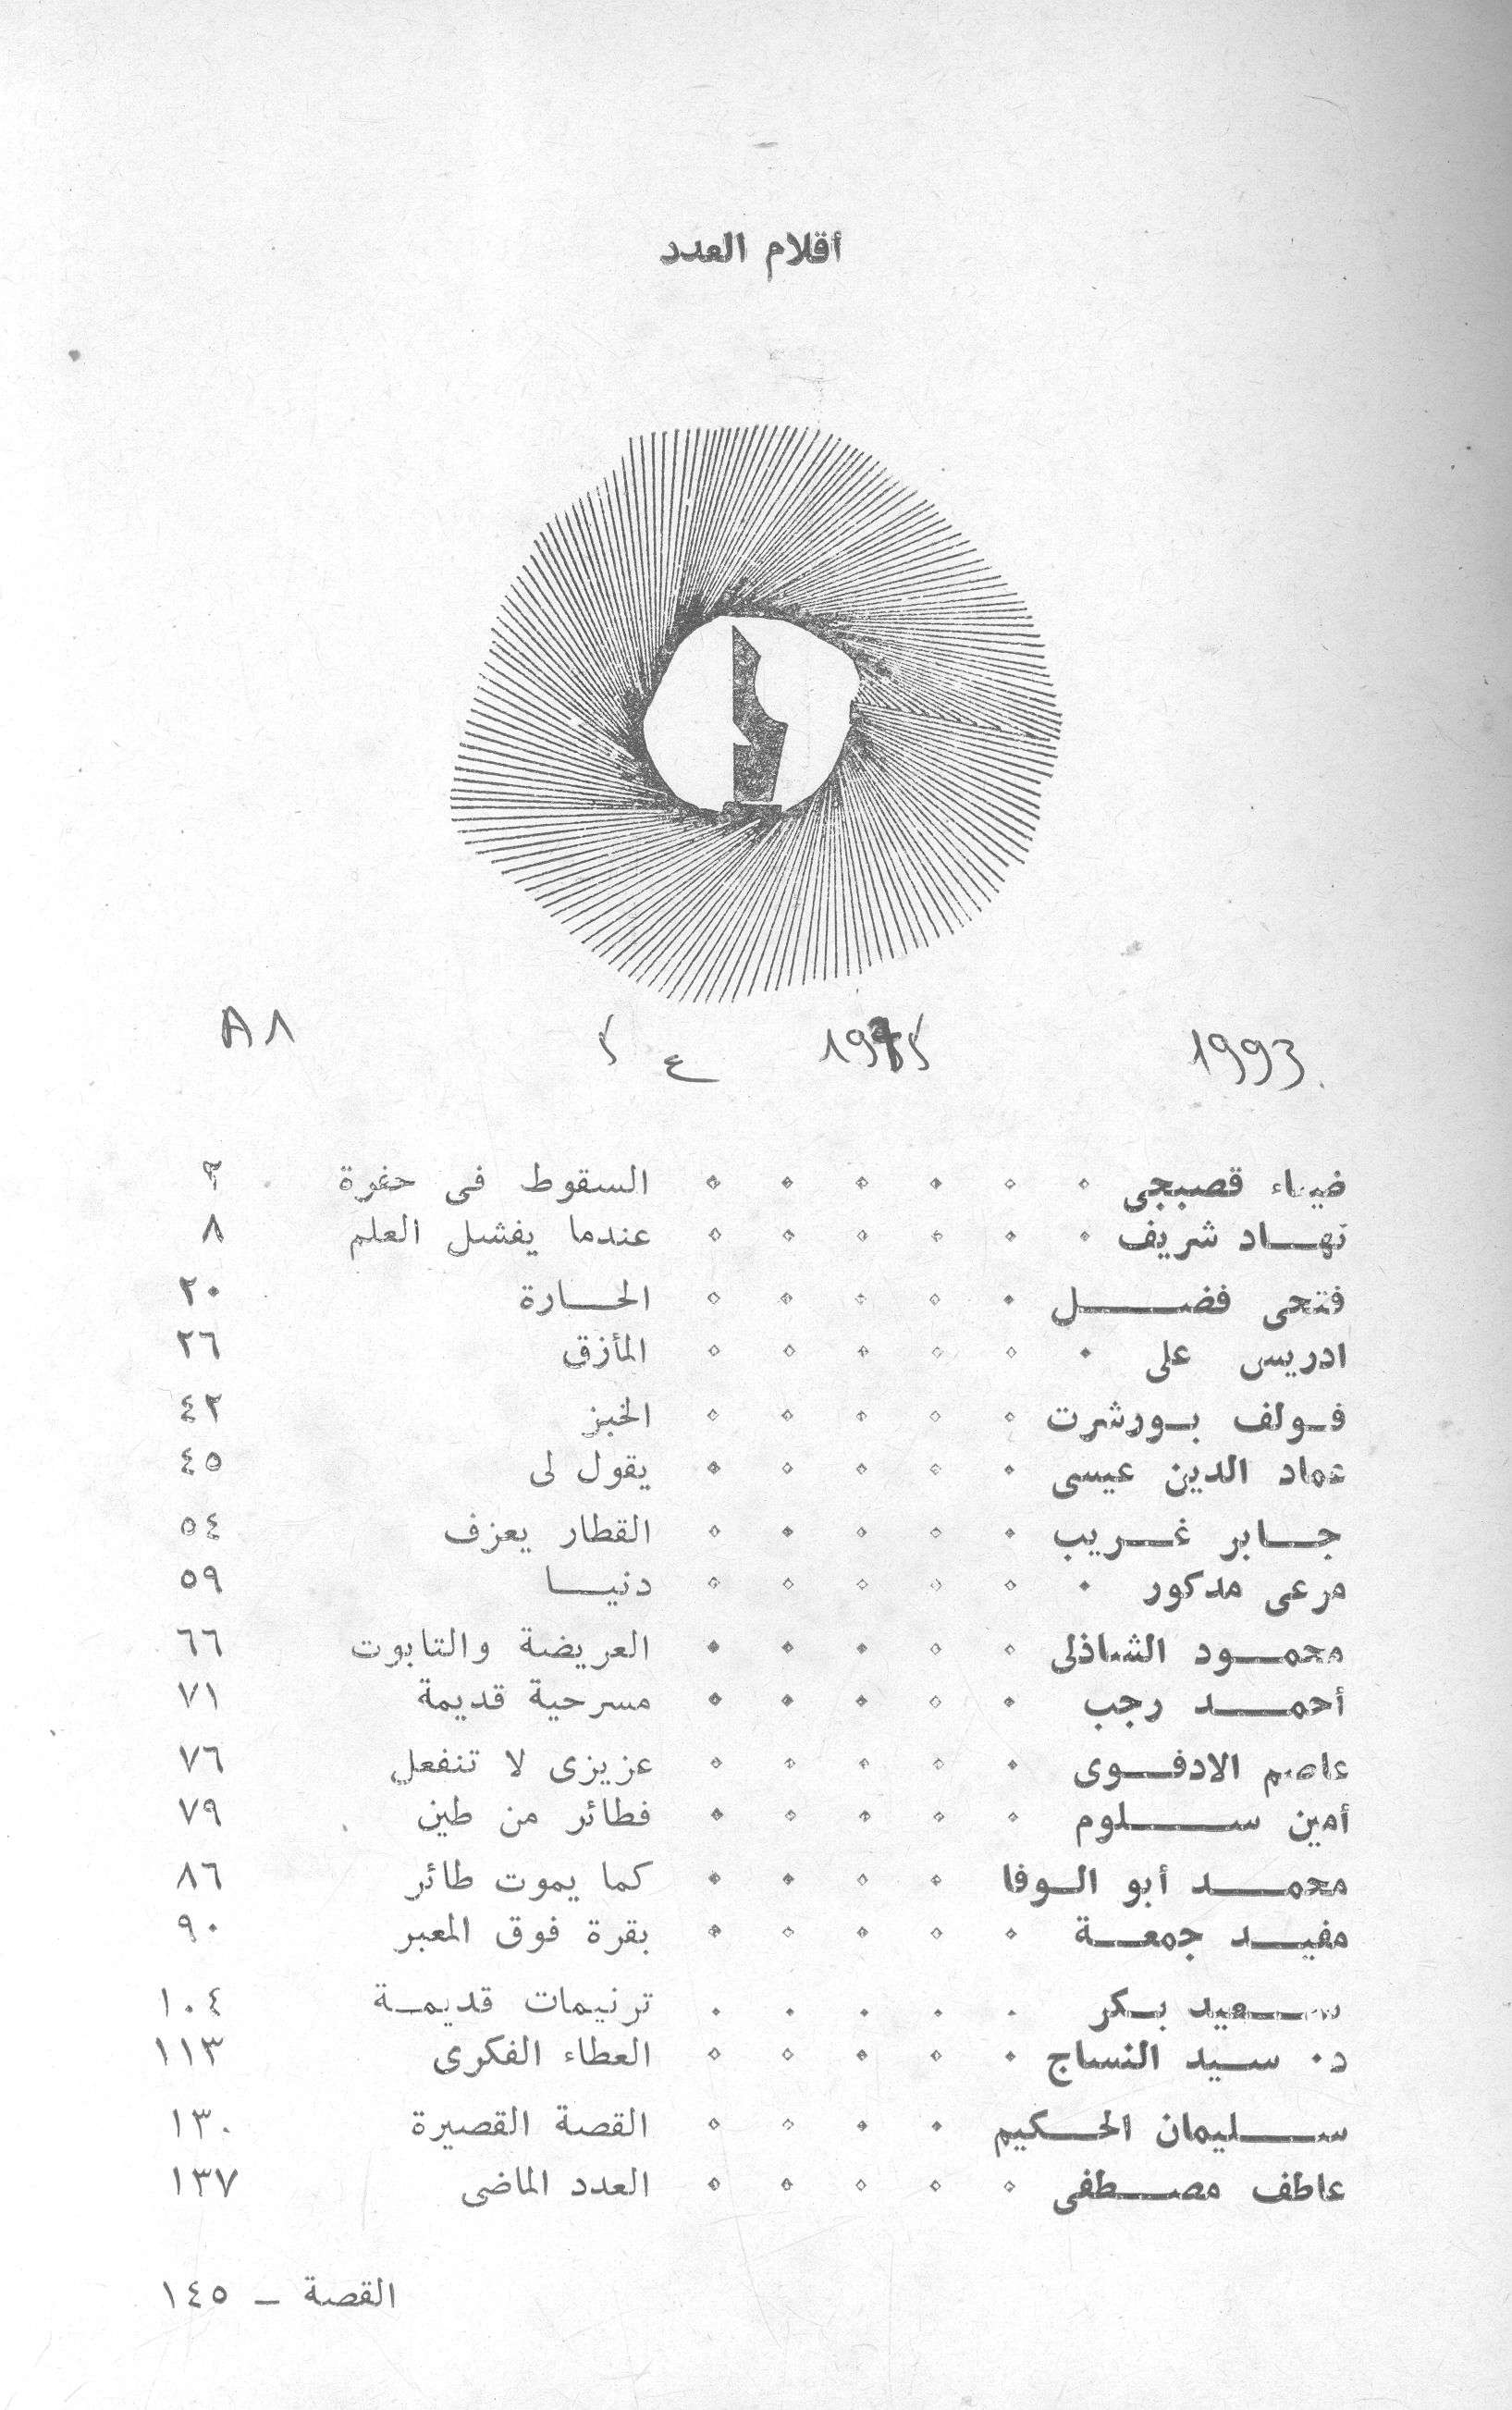 أقلام العدد
1993
ضياء قصبجى السقوط فى حفرة ٣
نهاد شريف عندما يفشل العلم ٨
فتحى فضل الحارة ٢٠
ادريس على المأزق ٢٦
فولف بورشرت الخبز ٤٢
عماد الدين عيسى يقول لى ٤٥
جابر غريب القطار يعزف ٥٤
مرعى مدكور دنيا ٥٩
محمود الشاذلى العريضة والتابوت ٦٦
أحمد رجب مسرحية قديمة ٧١
عاصم الادفوى عزيزى لا تنفعل ٧٦
أمين سلوم فطائر من طين ٧٩
محمد أبو الوفا كما يموت طائر ٨٦
مفيد جمعة بقرة فوق المعبر ٩٠
سعيد بكر ترنيمات قديمة ١٠٤
د. سيد النساج العطاء الفكرى ١١٣
سليمان الحكيم القصة القصيرة ١٣٠
عاطف مصطفى العدد الماضى ١٣٧
القصة ـ ١٤٥